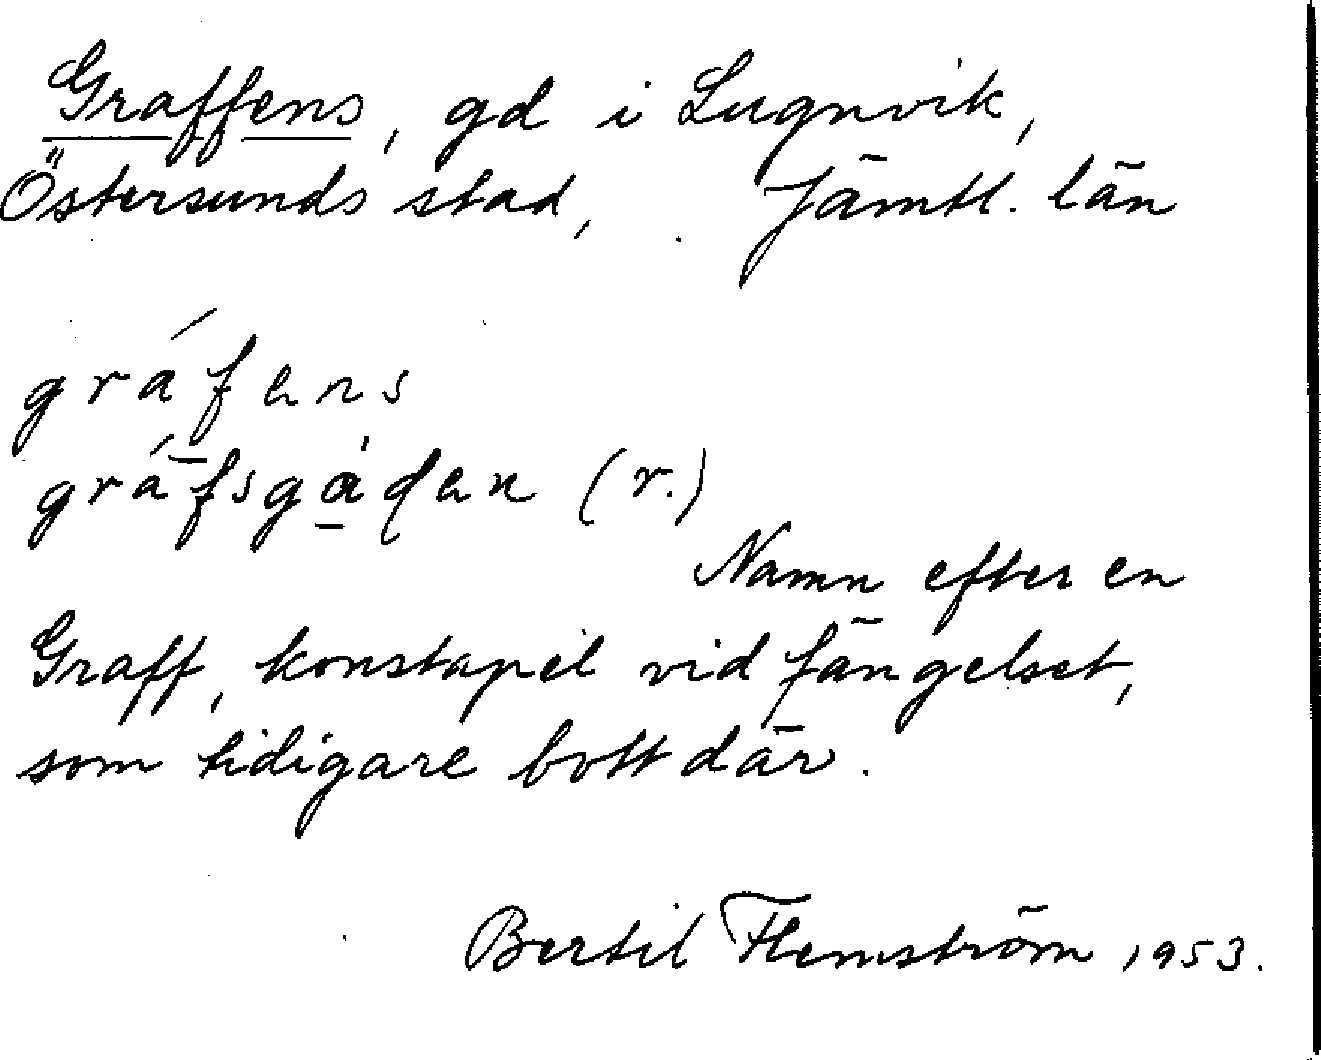 Graffens, gd i Lugnvik,
Östersunds stad, Jämtl. län
gráfens
gráfsgàɖen (r.)
Namn efter en
Graff, konstapel vid fängelset,
som tidigare bott där.
Bertil Flemström 1953.